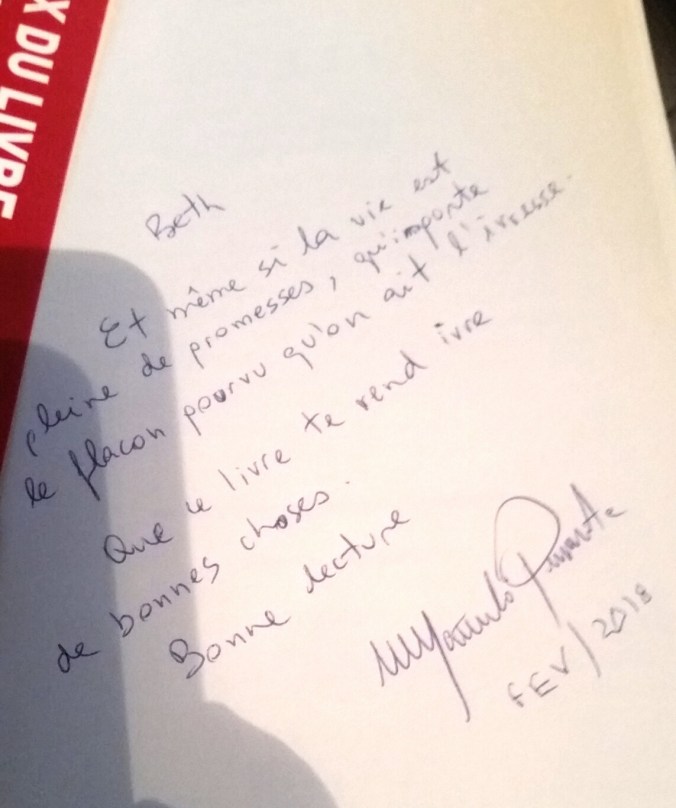 X DU LIVRE
Beth
Et même si la vie est
pleine de promesses, qu'importe
le flacon pourvu qu'on ait l'ivresse.
Que ce livre te rend ivre
de bonnes choses.
Bonne lecture
FEV/2018